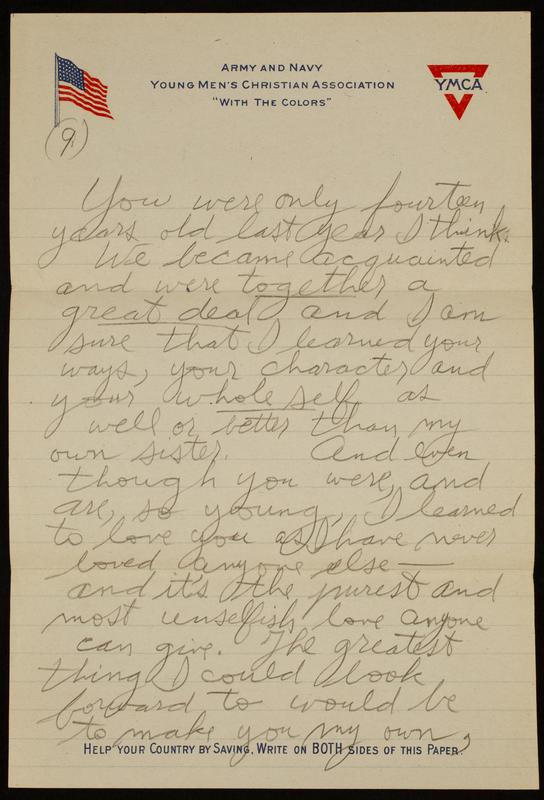 ARMY AND NAVY
YOUNG MEN'S CHRISTIAN ASSOCIATION
"WITH THE COLORS"
YMCA
9
You were only fourteen
years old last year I think.
We became acquainted
and were together a
great deal and I am
sure that I learned your
ways, your character and
your whole self as
well or better than my
own sister. And even
though you were, and
are, so young, I learned
to love you as I have never
loved anyone else —
and it's the purest and
most unselfish love anyone
can give. The greatest
thing I could look
forward to would be
to make you my own,
HELP YOUR COUNTRY BY SAVING, WRITE ON BOTH SIDES OF THIS PAPER.